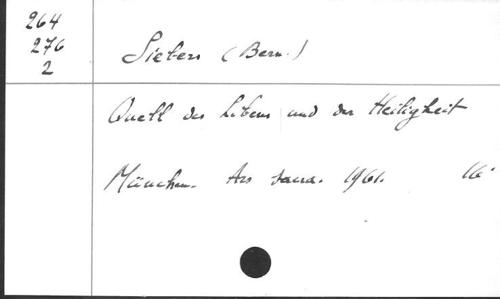 264
276
2
Siebers (Bern.)
Quell des Lebens und der Heiligkeit
München. Ars sacra. 1961. 16°